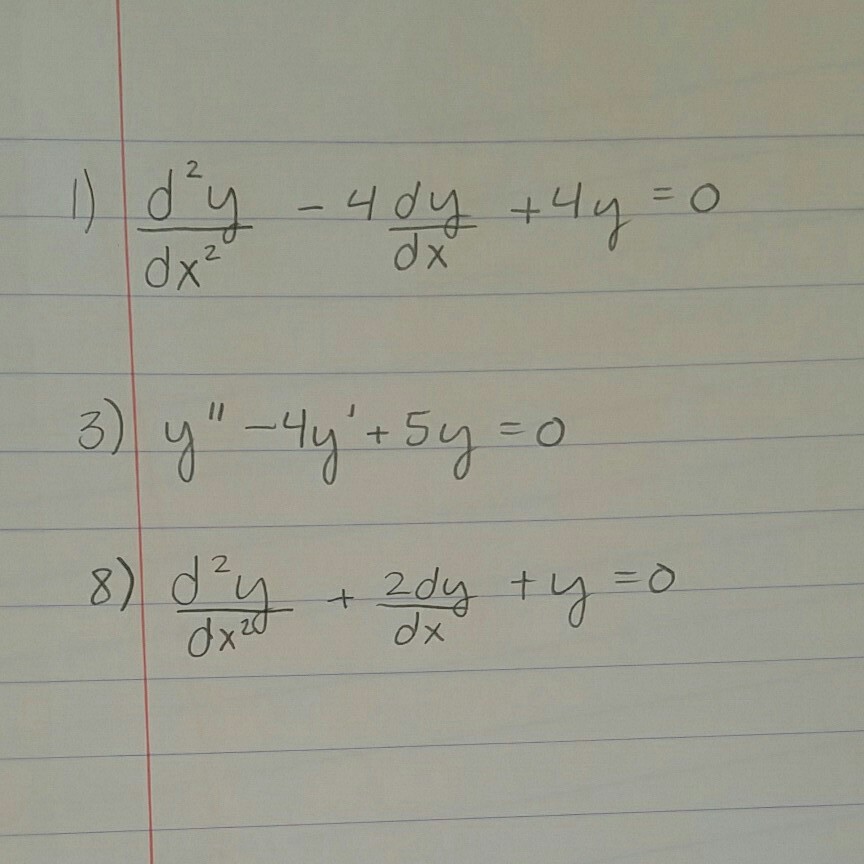 1) d²y/dx² - 4 dy/dx + 4y = 0
3) y'' - 4y' + 5y = 0
8) d²y/dx² + 2dy/dx + y = 0